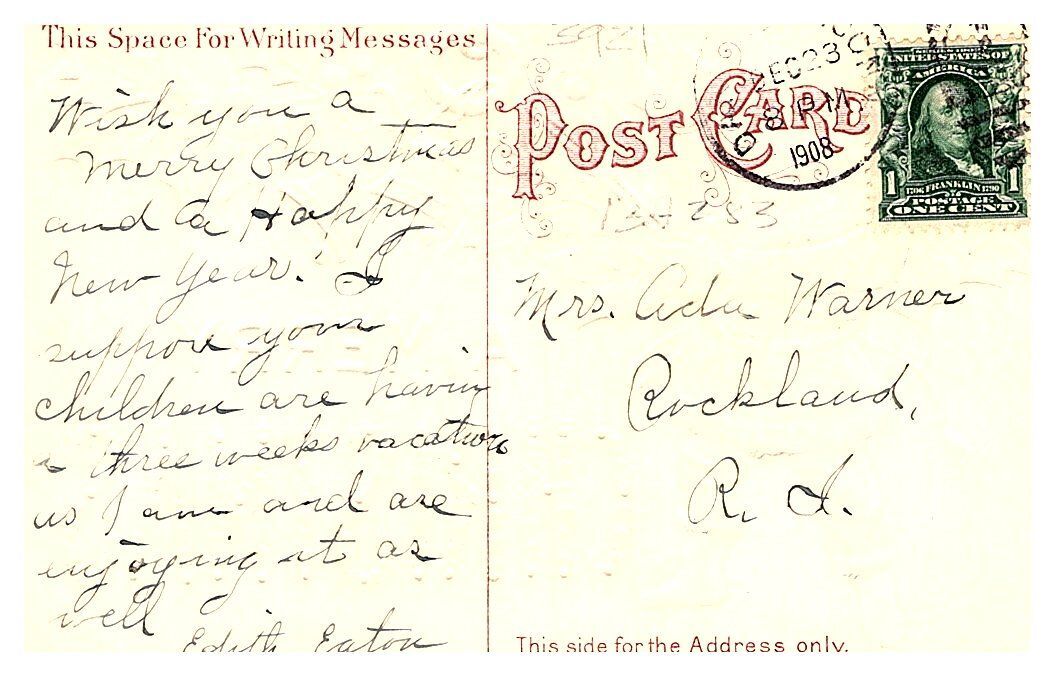 This Space For Writing Messages
Wish you a
Merry Christmas
and a Happy
New Year. I
suppose your
children are having
a three weeks vacation
as I am and are
enjoying it as
well
Edith Eaton
5921
POST CARD
DEC 23
8 PM
1908
UNITED STATES OF
AMERICA
1 1
1706 FRANKLIN 1790
POSTAGE
ONE CENT
Mrs. Ada Warner
Rockland,
R. I.
This side for the Address only.